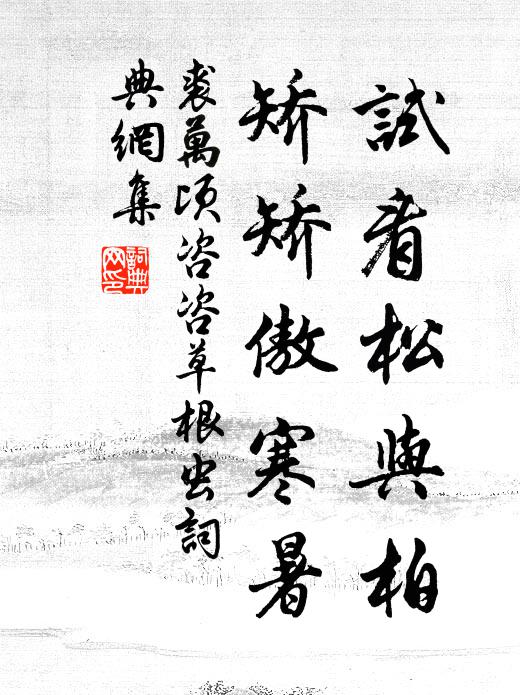 試看松與柏
矯矯傲寒暑
裘萬頃咨咨草根虫詞
典網集
詞典
网印